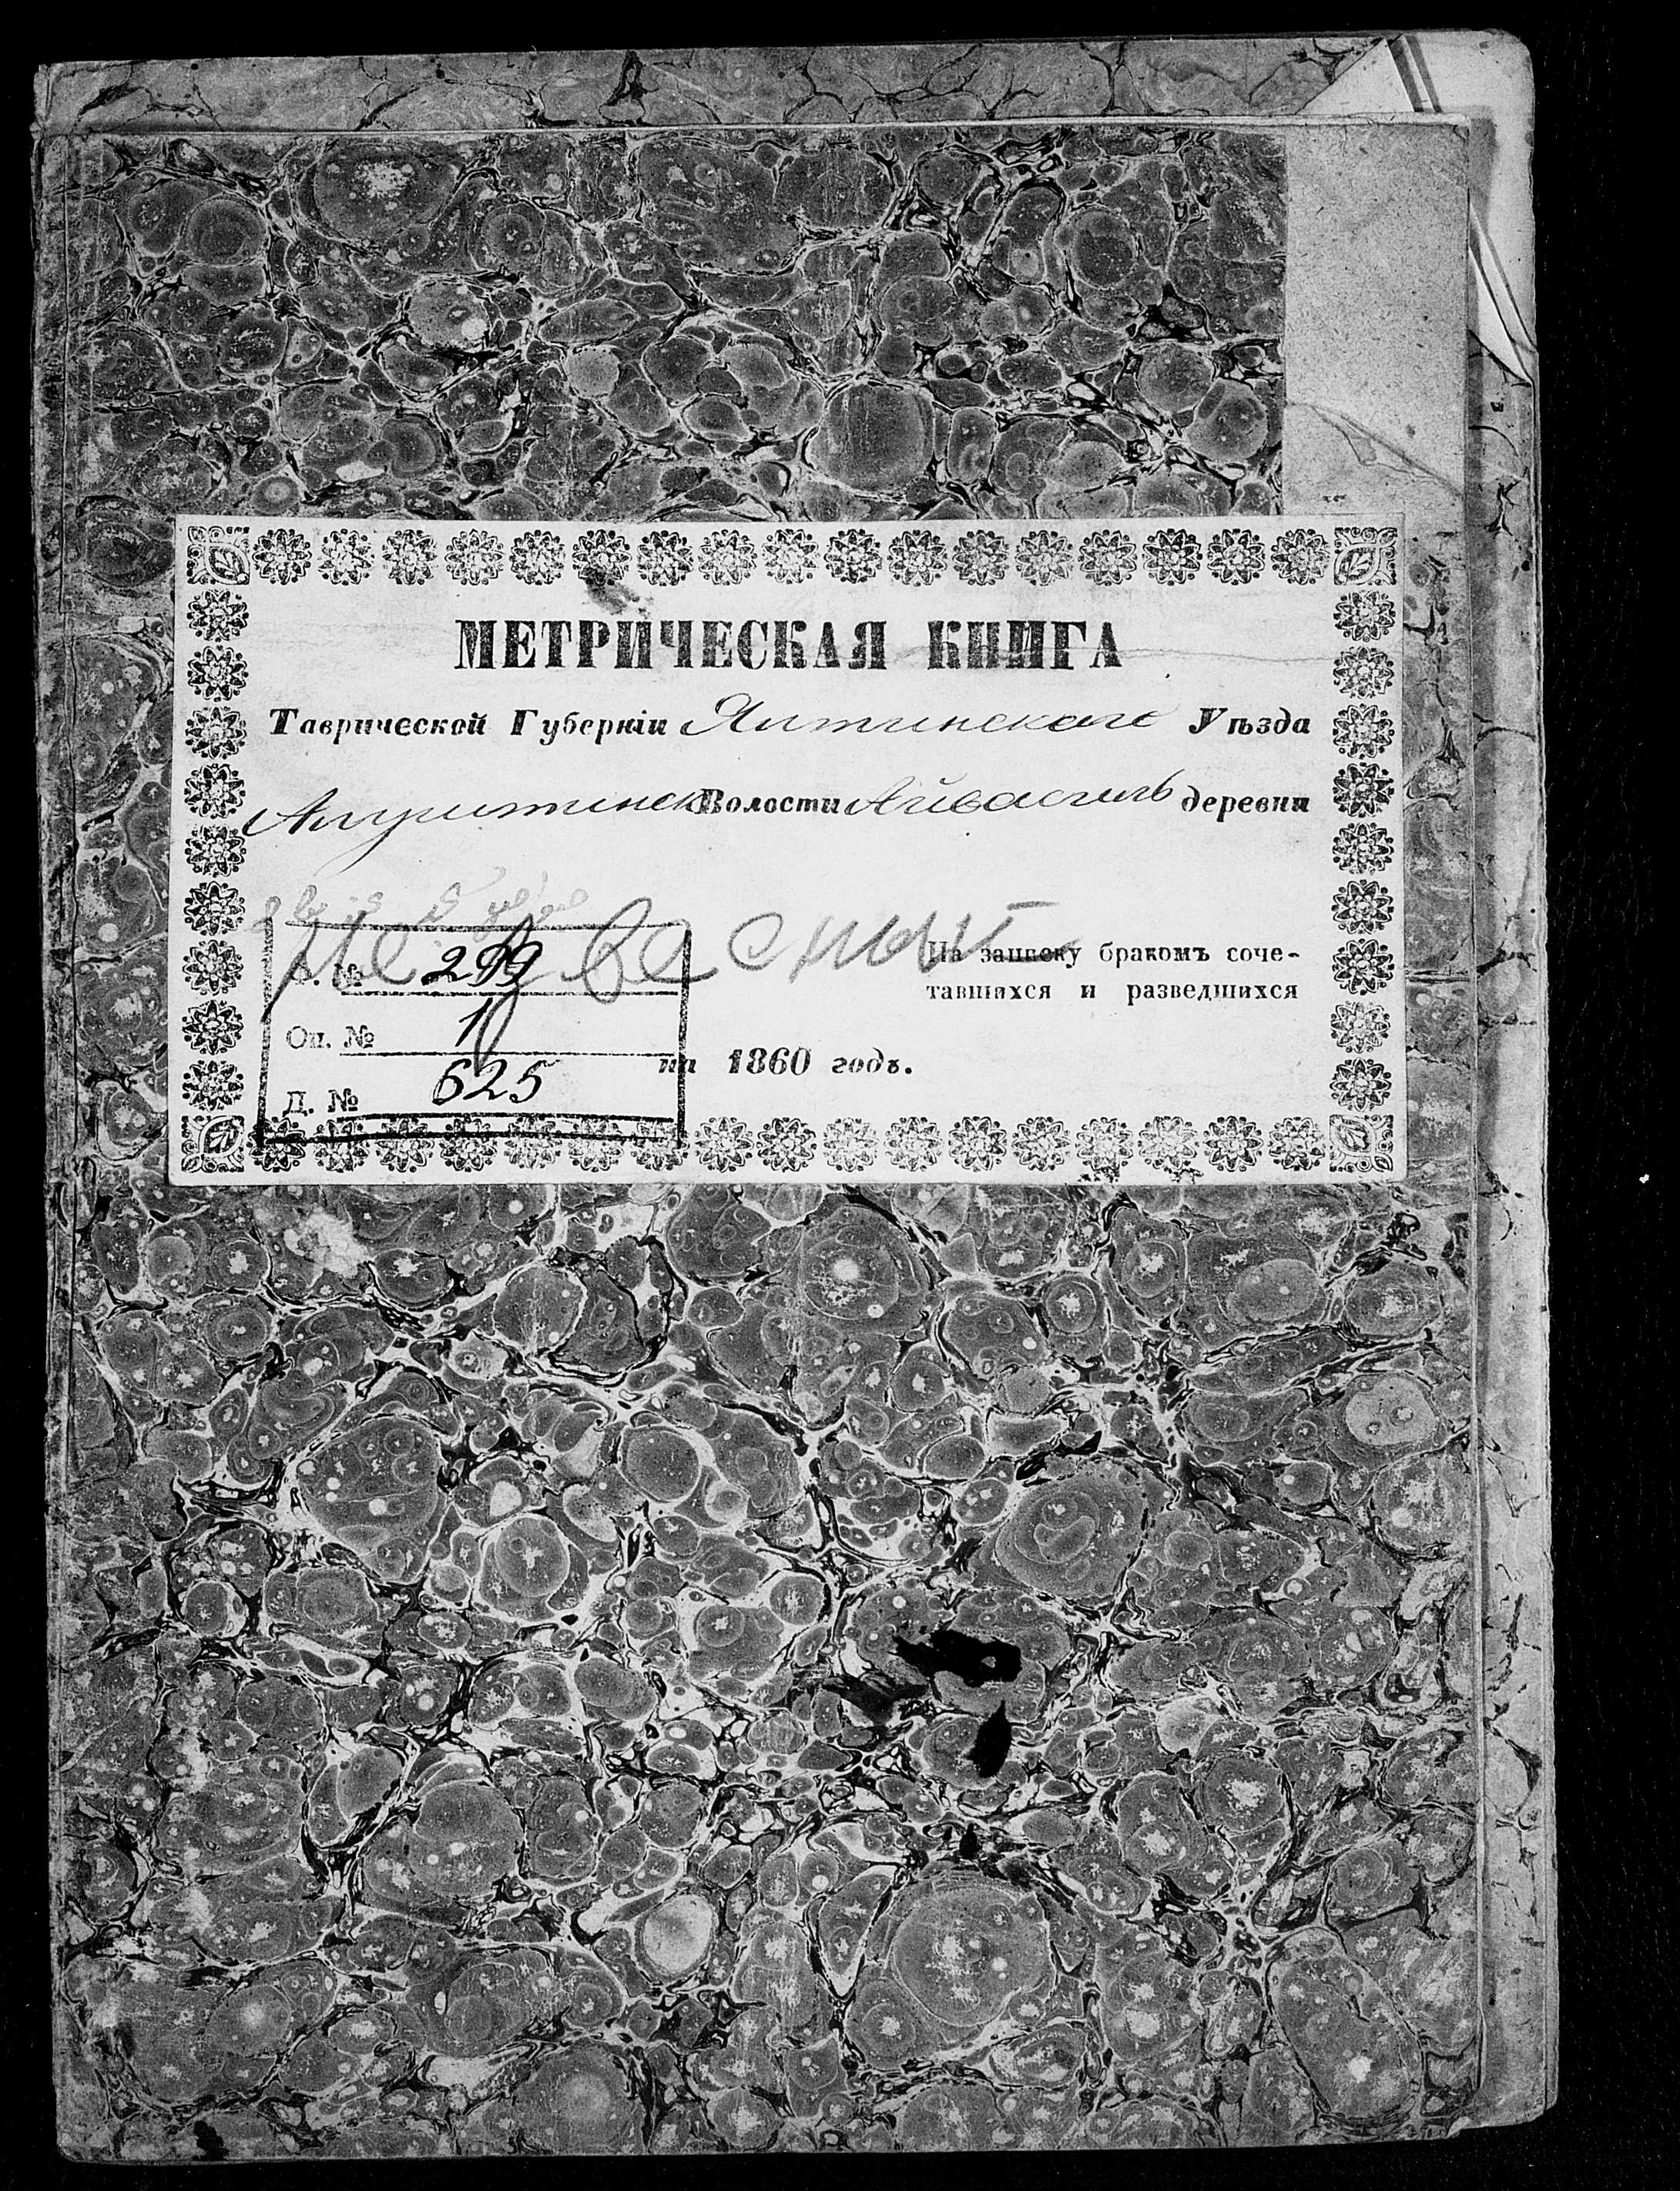 МЕТРИЧЕСКАЯ КНИГА
Таврической Губерніи Ялтинскаго Уѣзда
Алуштинск Волости Айвасиль деревни
На записку бракомъ соче-
тавшихся и разведшихся
на 1860 годъ.
Ф. № 299
Оп. № 1
Д. № 625